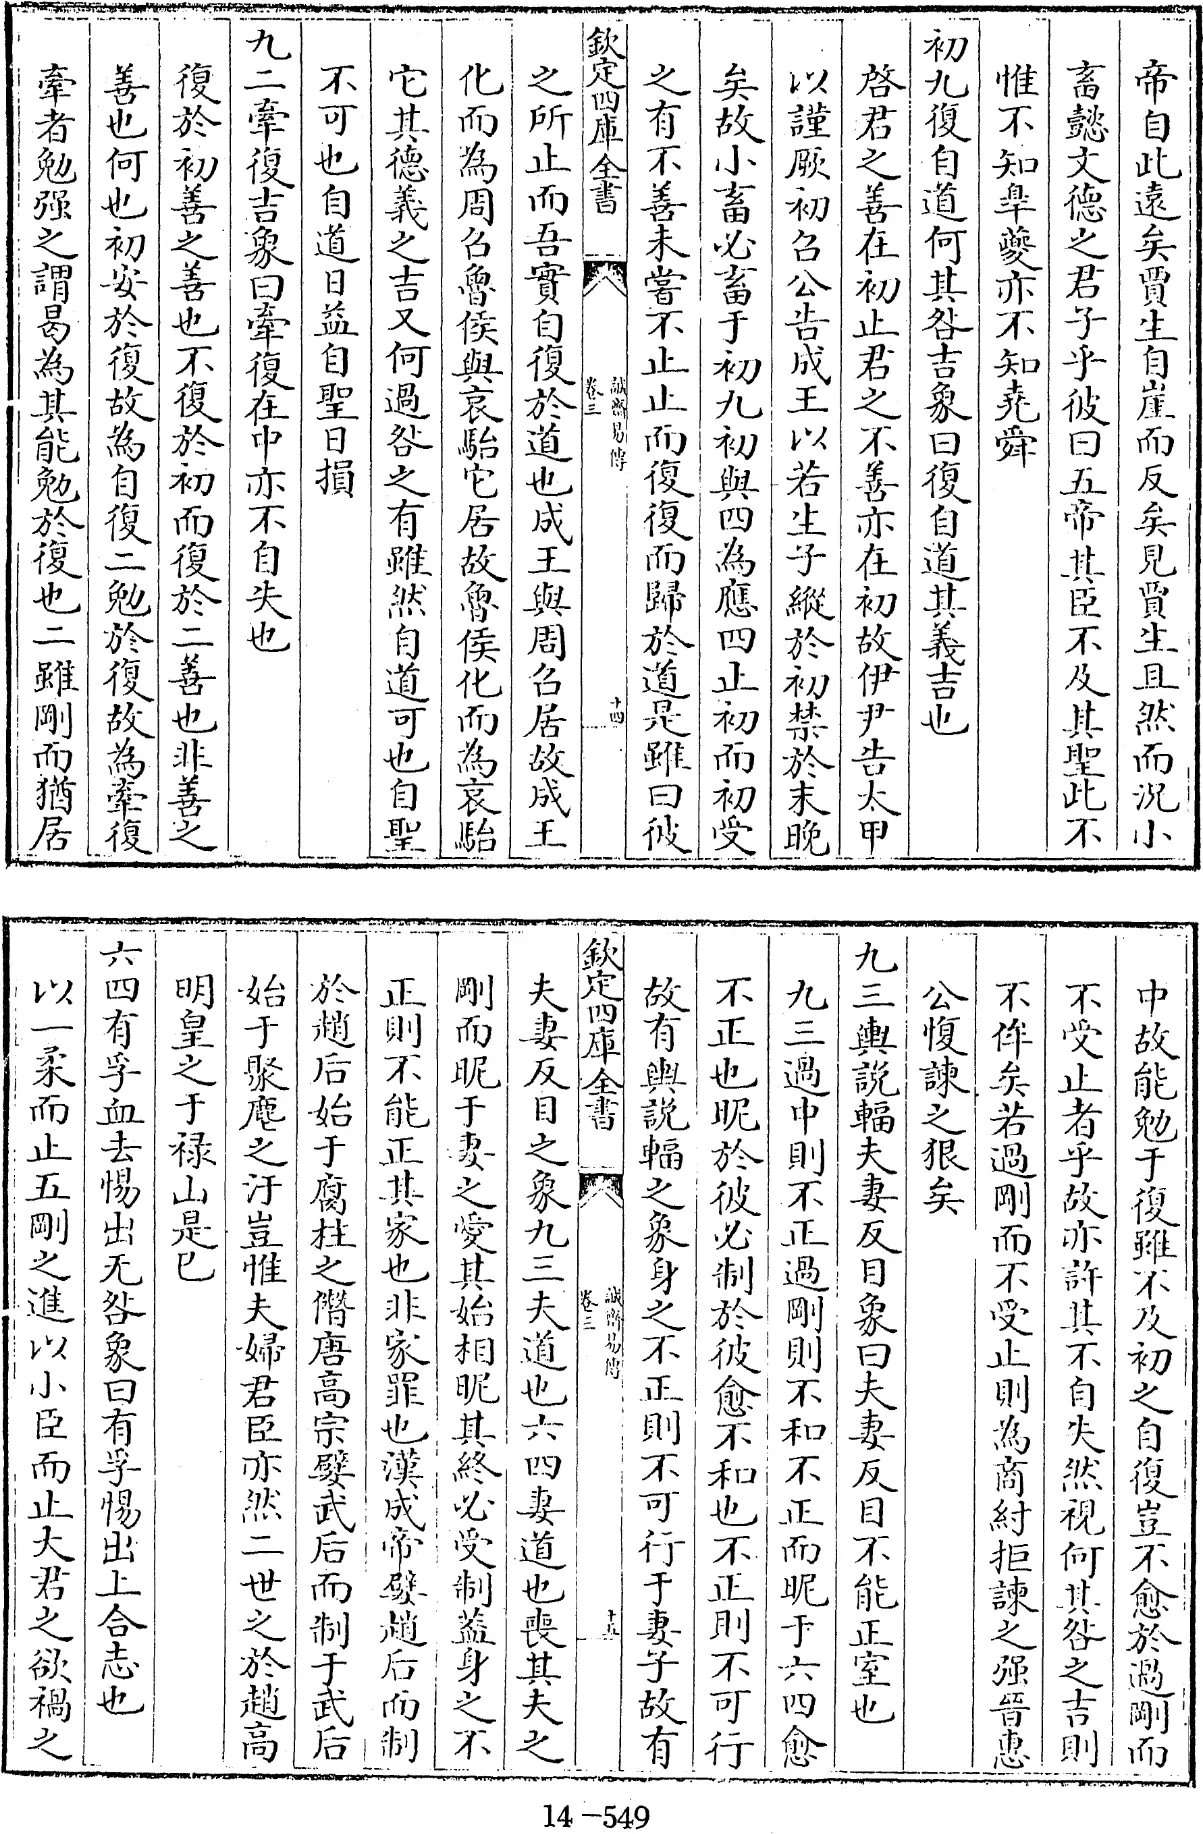 帝自此遠矣賈生自崖而反矣見賈生且然而況小
畜懿文德之君子乎彼曰五帝其臣不及其聖此不
惟不知臯夔亦不知堯舜
初九復自道何其咎吉象曰復自道其義吉也
啓君之善在初止君之不善亦在初故伊尹告太甲
以謹厥初召公告成王以若生子縱於初禁於末晚
矣故小畜必畜于初九初與四為應四止初而初受
之有不善未嘗不止止而復復而歸於道是雖曰彼
欽定四庫全書
誠齋易傳
卷三
十四
之所止而吾實自復於道也成王與周召居故成王
化而為周召魯侯與哀駘它居故魯侯化而為哀駘
它其德義之吉又何過咎之有雖然自道可也自聖
不可也自道日益自聖日損
九二牽復吉象曰牽復在中亦不自失也
復於初善之善也不復於初而復於二善也非善之
善也何也初安於復故為自復二勉於復故為牽復
牽者勉强之謂曷為其能勉於復也二雖剛而猶居
中故能勉于復雖不及初之自復豈不愈於過剛而
不受止者乎故亦許其不自失然視何其咎之吉則
不侔矣若過剛而不受止則為商紂拒諫之强晉惠
公愎諫之狠矣
九三輿説輻夫妻反目象曰夫妻反目不能正室也
九三過中則不正過剛則不和不正而昵于六四愈
不正也昵於彼必制於彼愈不和也不正則不可行
故有輿説輻之象身之不正則不可行于妻子故有
欽定四庫全書
誠齋易傳
卷三
十五
夫妻反目之象九三夫道也六四妻道也喪其夫之
剛而昵于妻之愛其始相昵其終必受制蓋身之不
正則不能正其家也非家罪也漢成帝嬖趙后而制
於趙后始于腐柱之僭唐高宗嬖武后而制于武后
始于聚麀之汙豈惟夫婦君臣亦然二世之於趙高
明皇之于禄山是已
六四有孚血去惕出无咎象曰有孚惕出上合志也
以一柔而止五剛之進以小臣而止大君之欲禍之
14-549